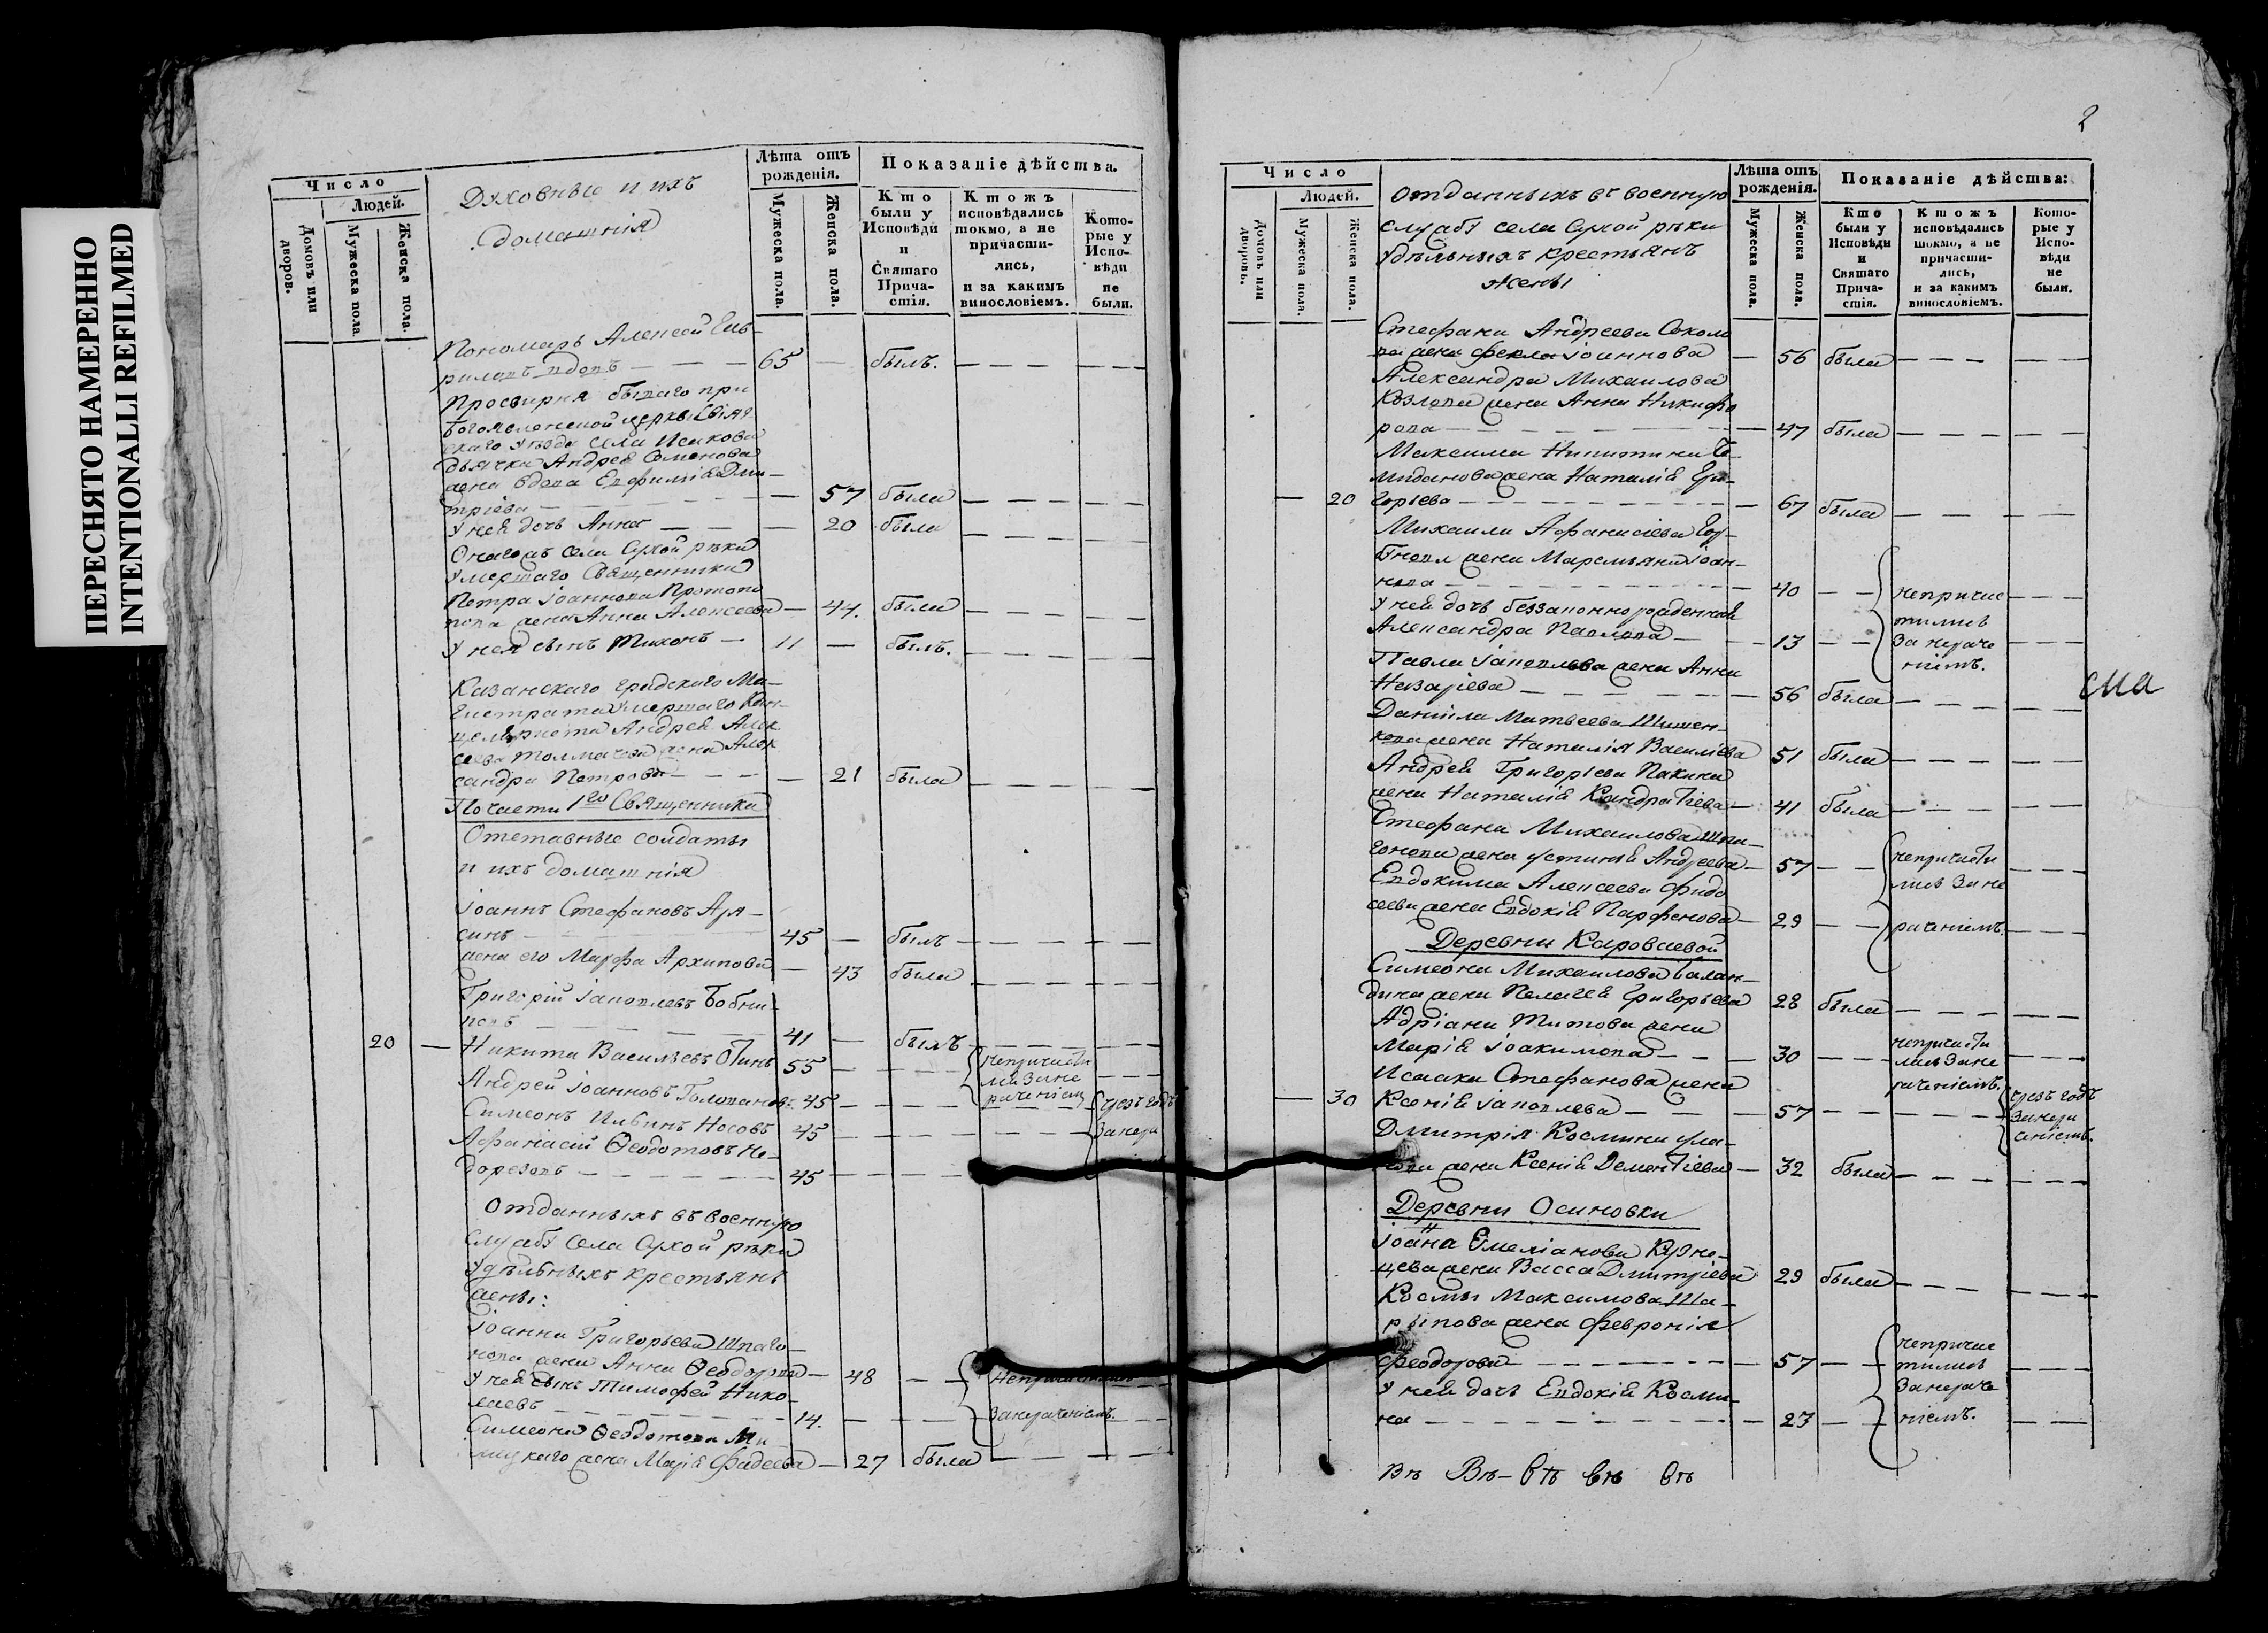 ПЕРЕСНЯТО НАМЕРЕННО
INTENTIONALLI REFILMED
Число
Людей.
Домовъ или дворовъ.
Мужеска пола.
Женска пола.
Духовные и ихъ
домашнія
Лѣта отъ рожденія.
Мужеска пола.
Женска пола.
Показаніе дѣйства.
Кто были у Исповѣди и Святаго Прича-стія.
Ктожъ исповѣдались токмо, а не причасти-лись, и за какимъ винословіемъ.
Кото-рые у Испо-вѣди не были.
Пономарь Алексей
вдовъ — — — 65 — былъ. — — — — — —
Просвирня бывшаго при
Богоявленской церкви
скаго уѣзда села Исакова
дьячка Андрея Семенова
жена вдова Евфимія Дми-
тріева — — 57 была — — — — —
У нея дочь Анна — — — 20 была — — — — —
Онагожъ села Сухой рѣки
умершаго Священника
Петра Іоаннова Протопо
пова жена Анна Алексеева — 44. была — — — — —
У нея сынъ Тихонъ — 11 — былъ. — — — — —
Казанскаго градскаго Ма-
гистрата умершаго Кан-
целяриста Андрея Алек
сеева Толмачева жена Алек
сандра Петрова — — — — 21 была — — — — —
По части 1го Священника
Отставные солдаты
и ихъ домашнія
Іоаннъ Стефановъ Аря-
синъ — 45 — былъ — — — — —
жена его Марфа Архипова — 43 была — — — — —
Григорій Іаковлевъ Бобни-
ковъ — 41 — былъ — — — — —
20 — Никита Васильевъ 55 — — — — непричасти
ли за не
раченіем
Андрей Іоанновъ 45 — — — — — чрезъ годъ
Симеонъ Ильинъ Носовъ 45 — — — — — за нера
Афанасій Ѳеодотовъ Не-
дорезовъ — — 45 — — — —
Отданныхъ въ военную
службу села Сухой рѣки
удѣльныхъ крестьянъ
жены:
Іоанна Григорьева Шпаго-
нова жена Анна Ѳеодорова — 48 — — Непричастилис
У нея сынъ Тимофей Нико-
лаевъ — — — 14. — — — за нераченіемъ.
Симеона Ѳеодотова Ми-
жена Марія Фадеева — 27 была — — — — —
2
Число
Людей.
Домовъ или дворовъ.
Мужеска пола.
Женска пола.
отданныхъ въ военную
службу села Сухой рѣки
удѣльныхъ крестьянъ
жены
Лѣта отъ рожденія.
Мужеска пола.
Женска пола.
Показаніе дѣйства:
Кто были у Исповѣди и Святаго Прича-стія.
Ктожъ исповѣдались токмо, а не причасти-лись, и за какимъ винословіемъ.
Кото-рые у Испо-вѣди не были.
Стефана Андреева Соколо
ва жена Фекла Іоаннова — 56 была — — — — —
Александра Михаилова
Козлова жена Анна Никифо
рова — — 47 была — — — — —
Максима Никитина
жена Наталія Гри-
— 20 горьева — — 67 была — — — — —
Михаила Афанасіева
жена Маремьяна Іоан-
нова — — 40 — — непричас — —
У ней дочь беззаконнорожденная тились
Александра Павлова — — 13 — — за нераче — —
ніемъ.
Павла Іаковлева жена Анна
Назаріева — — 56 была — — — — —
сиа
Даніила Матвеева Шишен-
кова жена Наталія Василіева 51 была — — — — —
Андрея Григорьева Пакина
жена Наталія Кандратіева — 41 была — — — — —
Стефана Михаилова Шпа-
гонова жена Устинія Андреева — 57 — — непричасти
лись за не
Евдокима Алексеева Фадо
сеева жена Евдокія Парфенова — 29 — — раченіемъ.
Деревни Короваевой
Симеона Михаилова Балан-
дина жена Пелагея Григорьева 28 была — — — — —
Адріана Титова жена
Марія Іоакимова — — — 30 — — непричасти
лись за не
раченіемъ.
Исаака Стефанова жена
— 30 Ксенія Іаковлева — — 57 — — — — — чрезъ годъ
за нера
ченіемъ.
Дмитрія Космина
жена Ксенія Дементіева — 32 была — — — — —
Деревни Осиновки
Іоанна Емеліанова Кузне-
цева жена Васса Дмитріева 29 была — — — — —
Космы Максимова Ша-
рыпова жена Февронія непричас
Феодорова — — 57 — — тились
У ней дочь Евдокія Косми- за нераче
на — — 23 — — ніемъ. — —
Въ Въ – въ въ въ